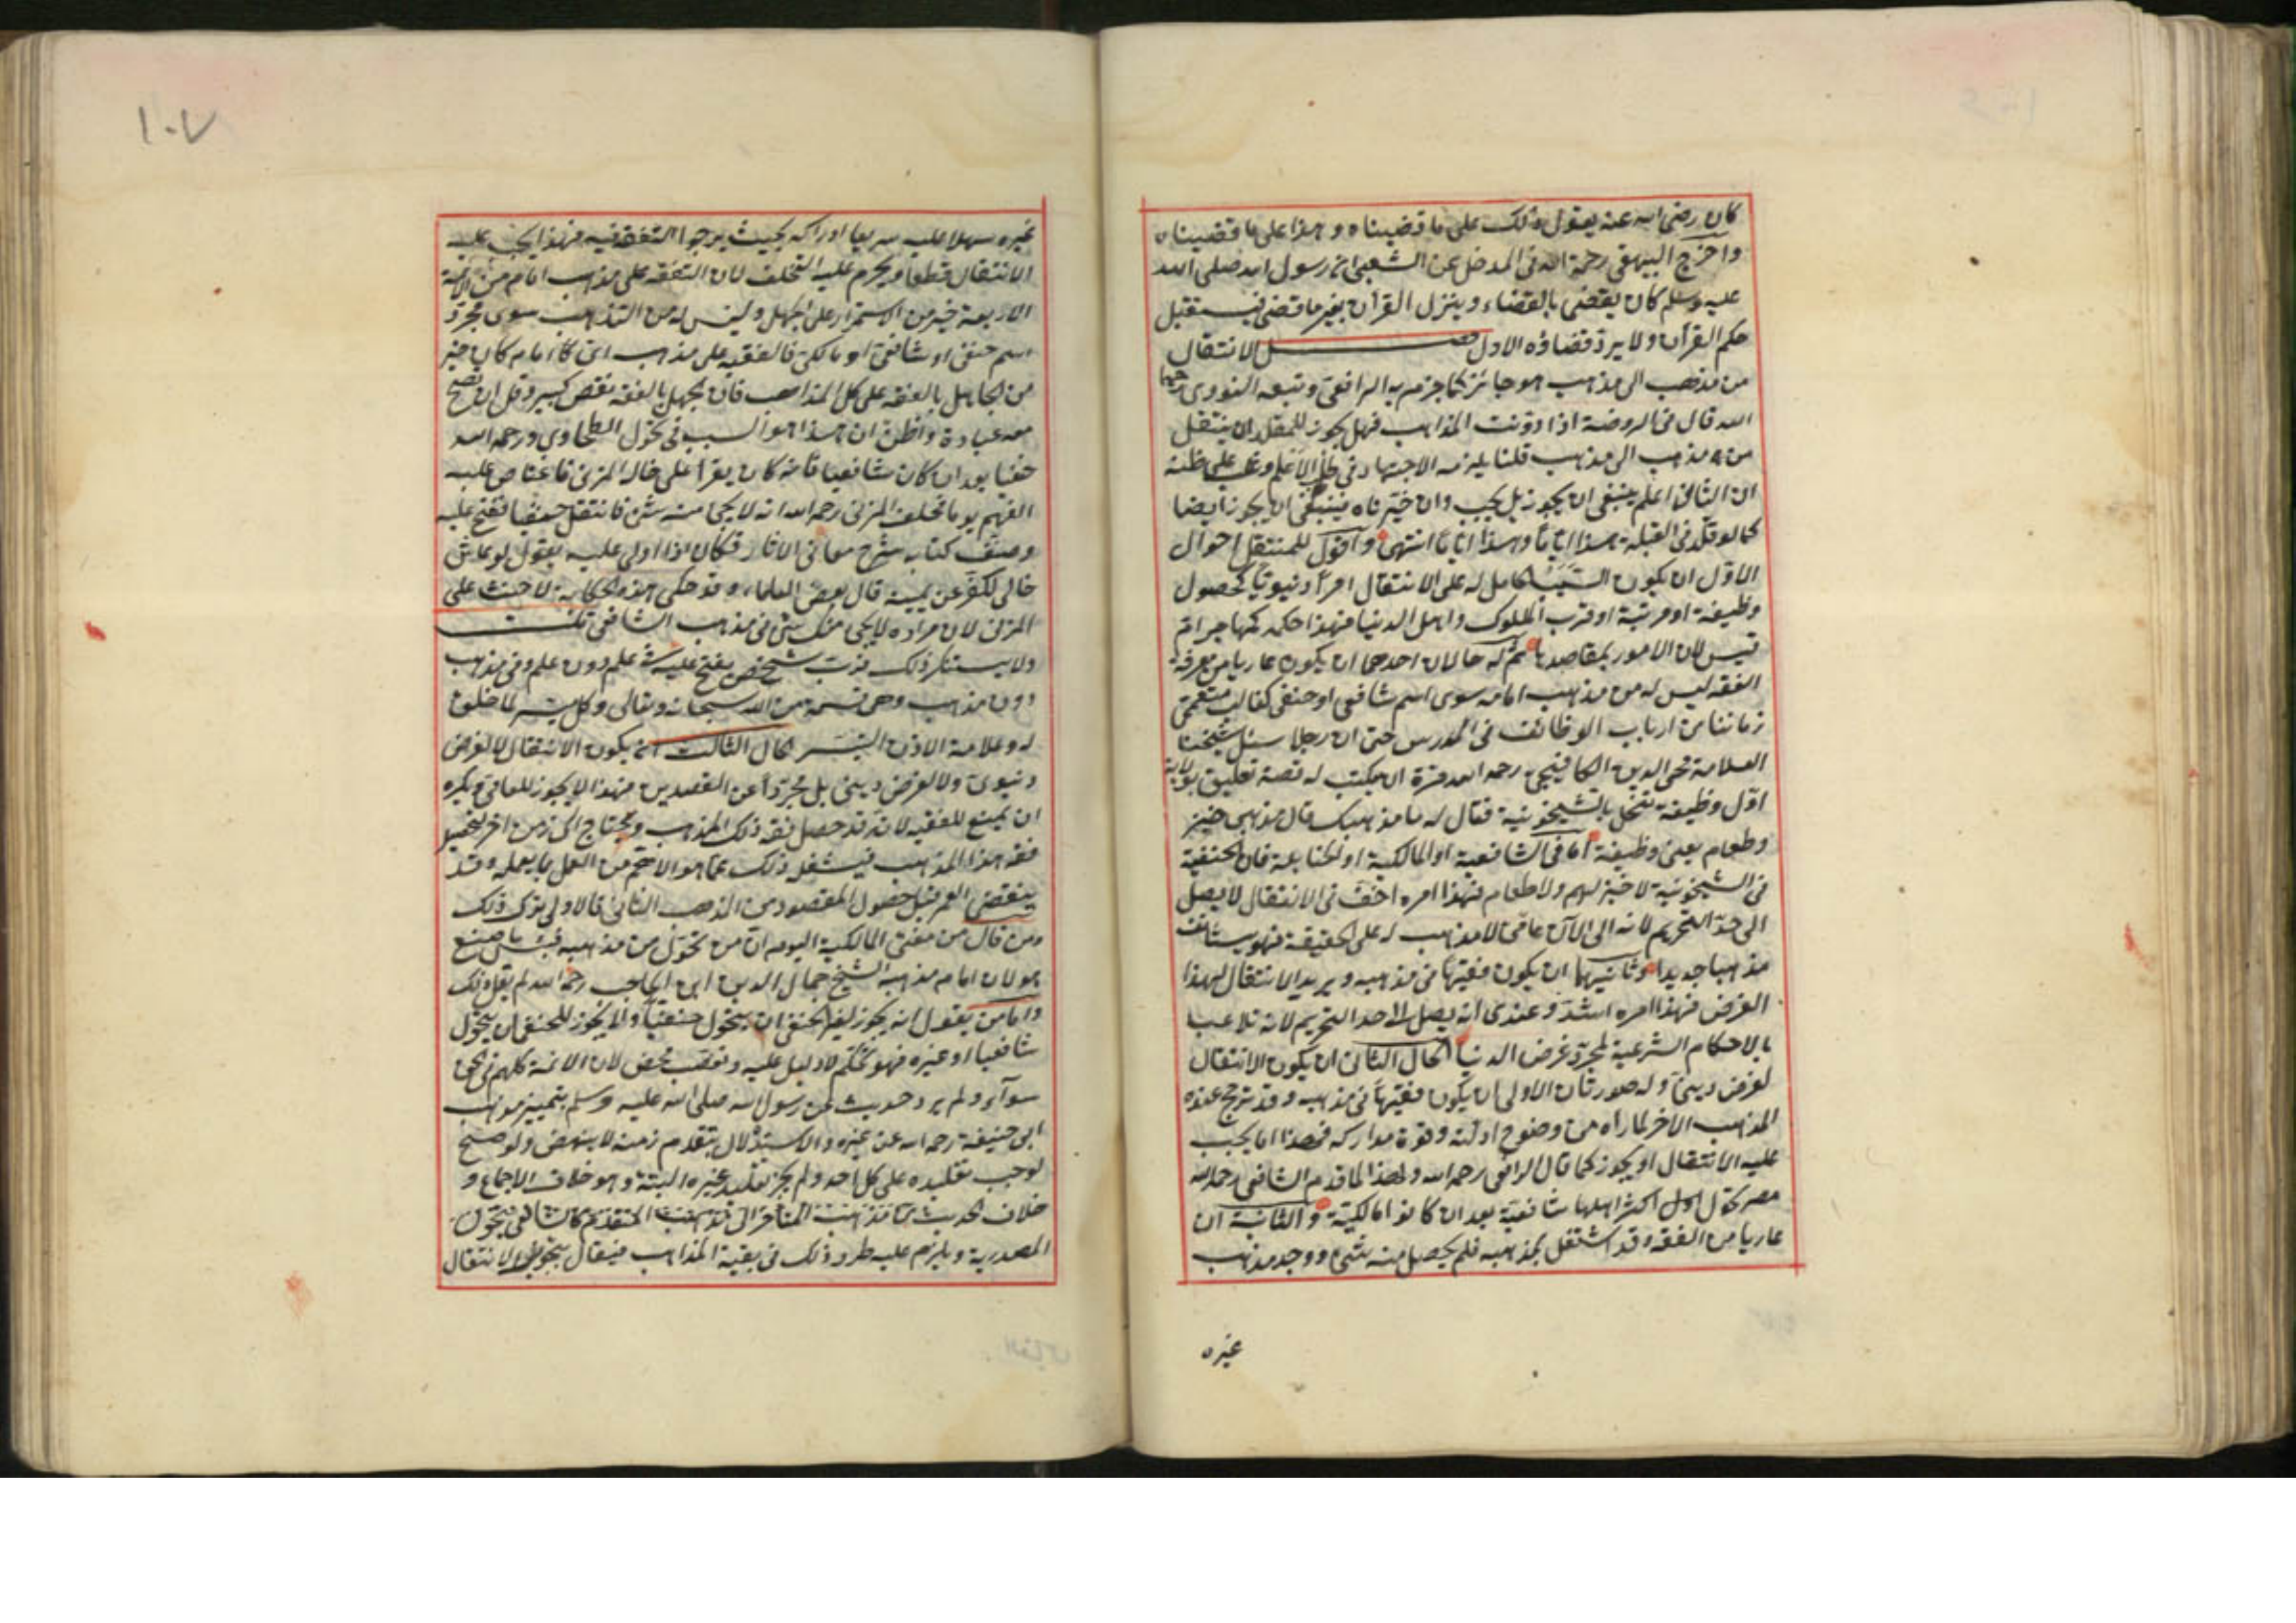 كان رضي الله عنه يقول ذلك على ما قضيناه وهذا على ما قضيناه
واخرج البيهقي رحمة الله في المدخل عن الشعبي ان رسول الله صلى الله
عليه وسلم كان يقضي بالقضاء وينزل القرآن بغير ما قضى فيستقبل
حكم القرآن ولا يرد قضاؤه الاول فصل الانتقال
من مذهب الى مذهب هو جائز كما جزم به الرافعي وتبعه النووي رحمهما
الله قال في الروضة اذا دونت المذاهب فهل يجوز للمقلد ان ينتقل
من مذهب الى مذهب قلنا يلزمه الاجتهاد في طلب الاعلم وغلب على ظنه
ان الثاني اعلم ينبغي ان يجوز بل يجب وان خيرناه فينبغي ان يجوز ايضا
كما لو قلد في القبلة هذا اياما وهذا اياما انتهى واقول للمنتقل احوال
الاول ان يكون السبب الحامل له على الانتقال امرا دنيويا كحصول
وظيفة او مرتبة او قرب الملوك واهل الدنيا فهذا حكمه كمهاجر ام
قيس لان الامور بمقاصدها ثم له حالان احدهما ان يكون عاريا من معرفة
الفقه ليس له من مذهب امامه سوى اسم شافعي او حنفي كغالب متعممي
زماننا من ارباب الوظائف في المدرس حتى ان رجلا سئل شيخنا
العلامة محي الدين الكافيجي رحمه الله مرة ان يكتب له قصة تعليق بولاية
اول وظيفة تنحل بالشيخونية فقال له ما مذهبك قال مذهبي خبز
وطعام يعني وظيفة اما في الشافعية او المالكية او الحنابلة فان الحنفية
في الشيخونية لا خبز لهم ولا طعام فهذا امره اخف في الانتقال لا يصل
الى حد التحريم لانه الى الآن عامي لا مذهب له على الحقيقة فهو يستأنف
مذهبا جديدا وثانيهما ان يكون فقيها في مذهبه ويريد الانتقال لهذا
الغرض فهذا امره اشد وعندي انه يصل الى حد التحريم لانه تلاعب
بالاحكام الشرعية لمجرد غرض الدنيا الحال الثاني ان يكون الانتقال
لغرض ديني وله صورتان الاولى ان يكون فقيها في مذهبه وقد ترجح عنده
المذهب الاخر لما راه من وضوح ادلته وقوة مداركه فهذا اما يجب
عليه الانتقال او يجوز كما قال الرافعي رحمه الله ولهذا لما قدم الشافعي رحمه الله
مصر تحول اكثر اهلها شافعية بعد ان كانوا مالكية والثانية ان
عاريا من الفقه وقد اشتغل بمذهبه فلم يحصل منه شئ ووجد مذهب
غيره
١٠٧
غيره سهلا عليه سريعا ادراكه بحيث يرجوا التفقه فيه فهذا يجب عليه
الانتقال قطعا ويحرم عليه التخلف لان التفقه على مذهب امام من الائمة
الاربعة خير من الاستمرار على الجهل وليس له من التمذهب سوى مجرد
اسم حنفي او شافعي او مالكي فالفقيه على مذهب اي امام كان خير
من الجاهل بالفقه على كل المذاهب فان الجهل بالفقه نقص كبير وقل ان تصح
معه عبادة واظن ان هذا هو السبب في تحول الطحاوي رحمه الله
حنفيا بعد ان كان شافعيا فانه كان يقرأ على خاله المزني فاعتاص عليه
الفهم يوما فحلف المزني رحمه الله انه لا يجئ منه شئ فانتقل حنفيا ففتح عليه
وصنف كتابه شرح معاني الاثار فكان اذا اولي عليه يقول لو عاش
خالي لكفر عن يمينه قال بعض العلماء وقد حكى هذه الحكاية لا حنث على
المزني لان مراده لا يجئ منك شئ في مذهب الشافعي قلت
ولا يستنكر ذلك فرب شخص يفتح عليه في علم دون علم وفي مذهب
دون مذهب وهي قسمة من الله سبحانه وتعالى وكل ميسر لما خلق
له وعلامة الاذن التيسر الحال الثالث ان يكون الانتقال لا لغرض
دنيوي ولا لغرض ديني بل مجردا عن القصدين فهذا لا يجوز للعامي ويكره
ان يمنع للفقيه لانه قد حصل فقه ذلك المذهب ويحتاج الى زمن اخر لتحصيل
فقه هذا المذهب فيشغل ذلك عما هو الاهم من العمل بما يعمله وقد
ينقضي العمر قبل حصول المقصود من المذهب الثاني فالاولى ترك ذلك
ومن قال من مفتي المالكية اليوم ان من تحول من مذهبه فبئس ما صنع
هو لان امام مذهبه الشيخ جمال الدين ابن الحاجب رحمه الله لم يقل ذلك
واما من يقول انه يجوز لغير الحنفي ان يتحول حنفيا ولا يجوز للحنفي ان يتحول
شافعيا او غيره فهو تحكم لا دليل عليه وتعصب محض لان الائمة كلهم في الحق
سوآء ولم يرد حديث عن رسول الله صلى الله عليه وسلم بتمييز مذهب
ابي حنيفة رحمه الله عن غيره والاستدلال بتقدم زمنه لا ينهض ولو صح
لوجب تقليده على كل احد ولم يجز تقليد غيره البتة وهو خلاف الاجماع و
خلاف الحديث المتأخر الى المتقدم كالشافعي يتحول
المصدرية ويلزم عليه طرد ذلك في بقية المذاهب فيقال بجواز الانتقال